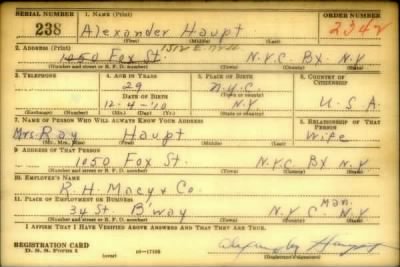 SERIAL NUMBER 1. NAME (Print) ORDER NUMBER
238 Alexander Haupt 2342
(First) (Middle) (Last)
2. ADDRESS (Print)
1512 E.
1050 Fox St. N.Y.C Bx N.Y
(Number and street or R. F. D. number) (Town) (County) (State)
3. TELEPHONE 4. AGE IN YEARS 5. PLACE OF BIRTH 6. COUNTRY OF CITIZENSHIP
29 N.Y.C.
DATE OF BIRTH (Town or county)
12-4-'10 N.Y U.S.A.
(Exchange) (Number) (Mo.) (Day) (Yr.) (State or country)
7. NAME OF PERSON WHO WILL ALWAYS KNOW YOUR ADDRESS 8. RELATIONSHIP OF THAT PERSON
Mrs. Ray Haupt Wife
(Mr., Mrs., Miss) (First) (Middle) (Last)
9. ADDRESS OF THAT PERSON
1050 Fox St. N.Y.C Bx N.Y
(Number and street or R. F. D. number) (Town) (County) (State)
10. EMPLOYER'S NAME
R. H. Macy & Co.
11. PLACE OF EMPLOYMENT OR BUSINESS
34 St. B'way N.Y C Man. N.Y
(Number and street or R. F. D. number) (Town) (County) (State)
I AFFIRM THAT I HAVE VERIFIED ABOVE ANSWERS AND THAT THEY ARE TRUE.
REGISTRATION CARD
D. S. S. Form 1 (over) 16-17105 Alexander Haupt
(Registrant's signature)